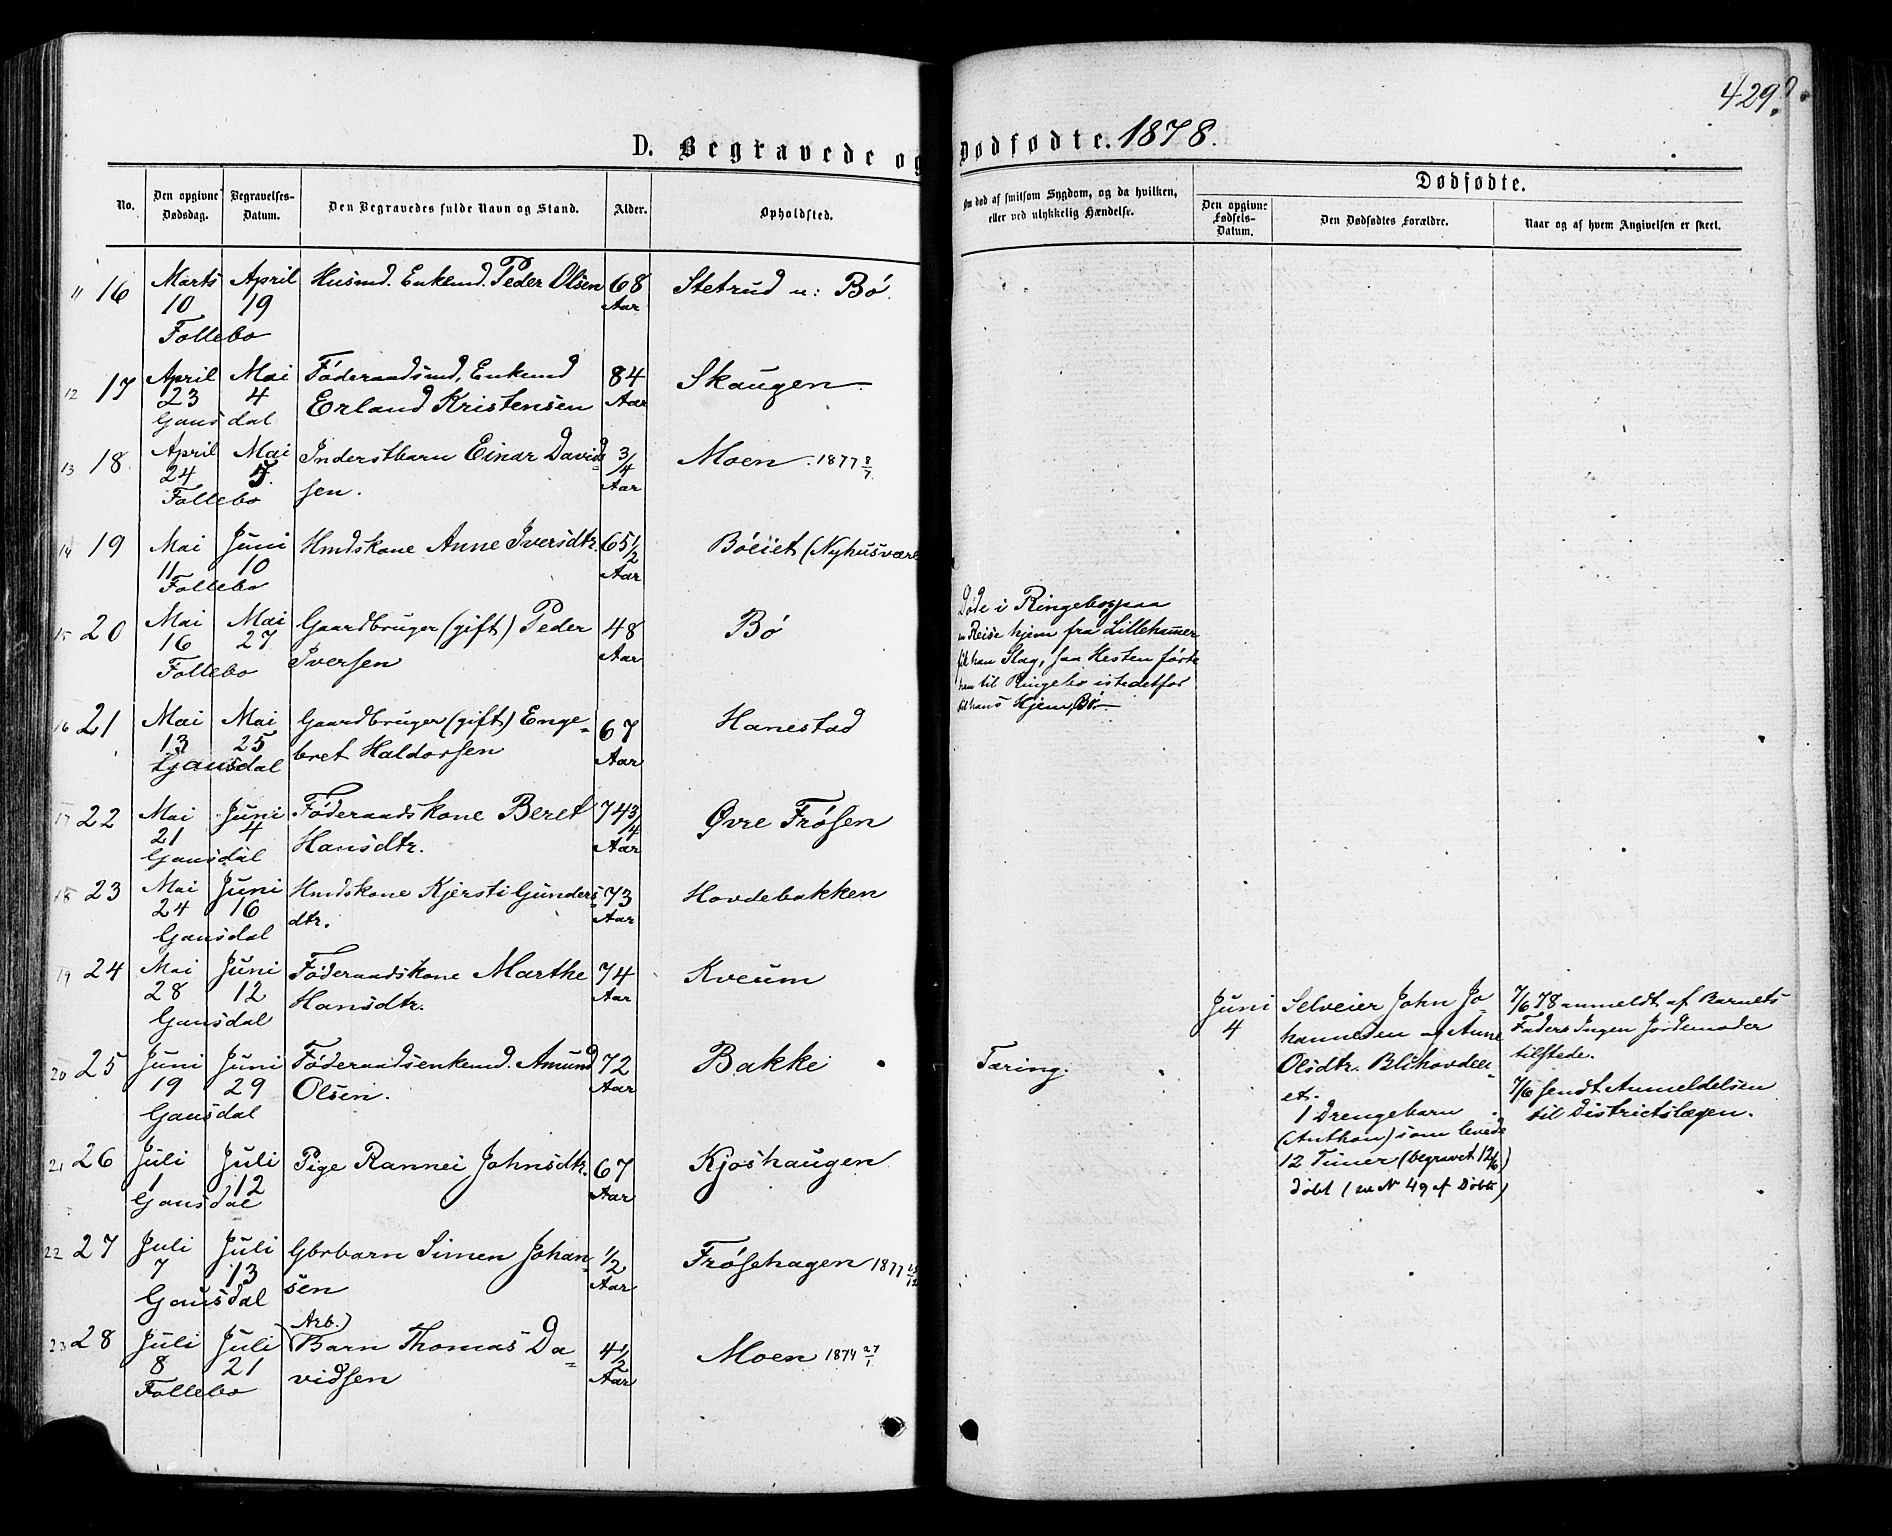 429.
D. Begravede og Dødfødte. 1878.
No.
Den opgivne Dødsdag.
Begravelses-Datum.
Den Begravedes fulde Navn og Stand.
Alder.
Opholdsted.
Om død af smitsom Sygdom, og da hvilken,
eller ved ulykkelig Hændelse.
Dødfødte.
Den opgivne Fødsels-Datum.
Den Dødfødtes Forældre.
Naar og af hvem Angivelsen er skeet.
11 16 Marts April Husmd. Enkemd. Peder Olsen 68 Stetrud u: Bø.
10 19 Aar
Follebo
12 17 April Mai Føderaadsmd, Enkemd 84 Skaugen
23 4 Erland Kristensen Aar
Gausdal
13 18 April Mai Inderstbarn Einar David= 3/4 Moen. 1877 8/7
24 5. sen. Aar
Follebo
14 19 Mai Juni Hmdskone Anne Iversdtr. 65 1/2 Bøeiet (Nyhusværk
11 10 Aar
Follebo
15 20 Mai Mai Gaardbruger (gift) Peder 48 Bø
16 27 Iversen Aar
Follebo
Døde i Ringebo, paa
en Reise hjem fra Lillehammer
fik han Slag, saa Hesten førte
ham til Ringebo istedetfor
til hans Hjem, Bø.
16 21 Mai Mai Gaardbruger (gift) Enge= 67 Hanestad
13 25 bret Haldorsen Aar
Gausdal
17 22 Mai Juni Føderaadskone Beret 74 3/4 Øvre Frøsen
21 4 Hansdtr. Aar
Gausdal
18 23 Mai Juni Hmdskone Kjersti Gunders= 73 Hovdebakken
24 16 dtr. Aar
Gausdal
19 24 Mai Juni Føderaadskone Marthe 74 Kveum
28 12 Hansdtr. Aar
Gausdal
20 25 Juni Juni Føderaadsenkemd. Amund 72 Bakke Tæring.
19 29 Olsen. Aar
Gausdal
Juni
4
Selveier John Jo=
hannesen og Anne
Olsdtr. Blihovdeei=
et.
1 Drengebarn
(Anthon) som levede
12 Timer (begravet 12/6)
døbt (se N 49 af Døbte)
7/6 78 anmeldt af Barnets
Fader. Ingen Jordemoder
tilstede.
7/6 sendt Anmeldelsen
til Districtslægen.
21 26 Juli Juli Pige Rannei Johnsdtr. 67 Kjoshaugen
1 12 Aar
Gausdal
22 27 Juli Juli Gbrbarn Simen Johan= 1/2 Frøsehagen 1877
7 13 sen Aar
Gausdal
Arb.)
23 28 Juli Juli Barn Thomas Da= 4 1/2 Moen 1874 27/1
8 21 vidsen Aar
Follebo